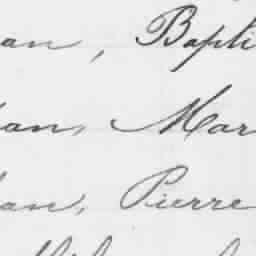 an, Bapti
an, Mar
an, Pierre